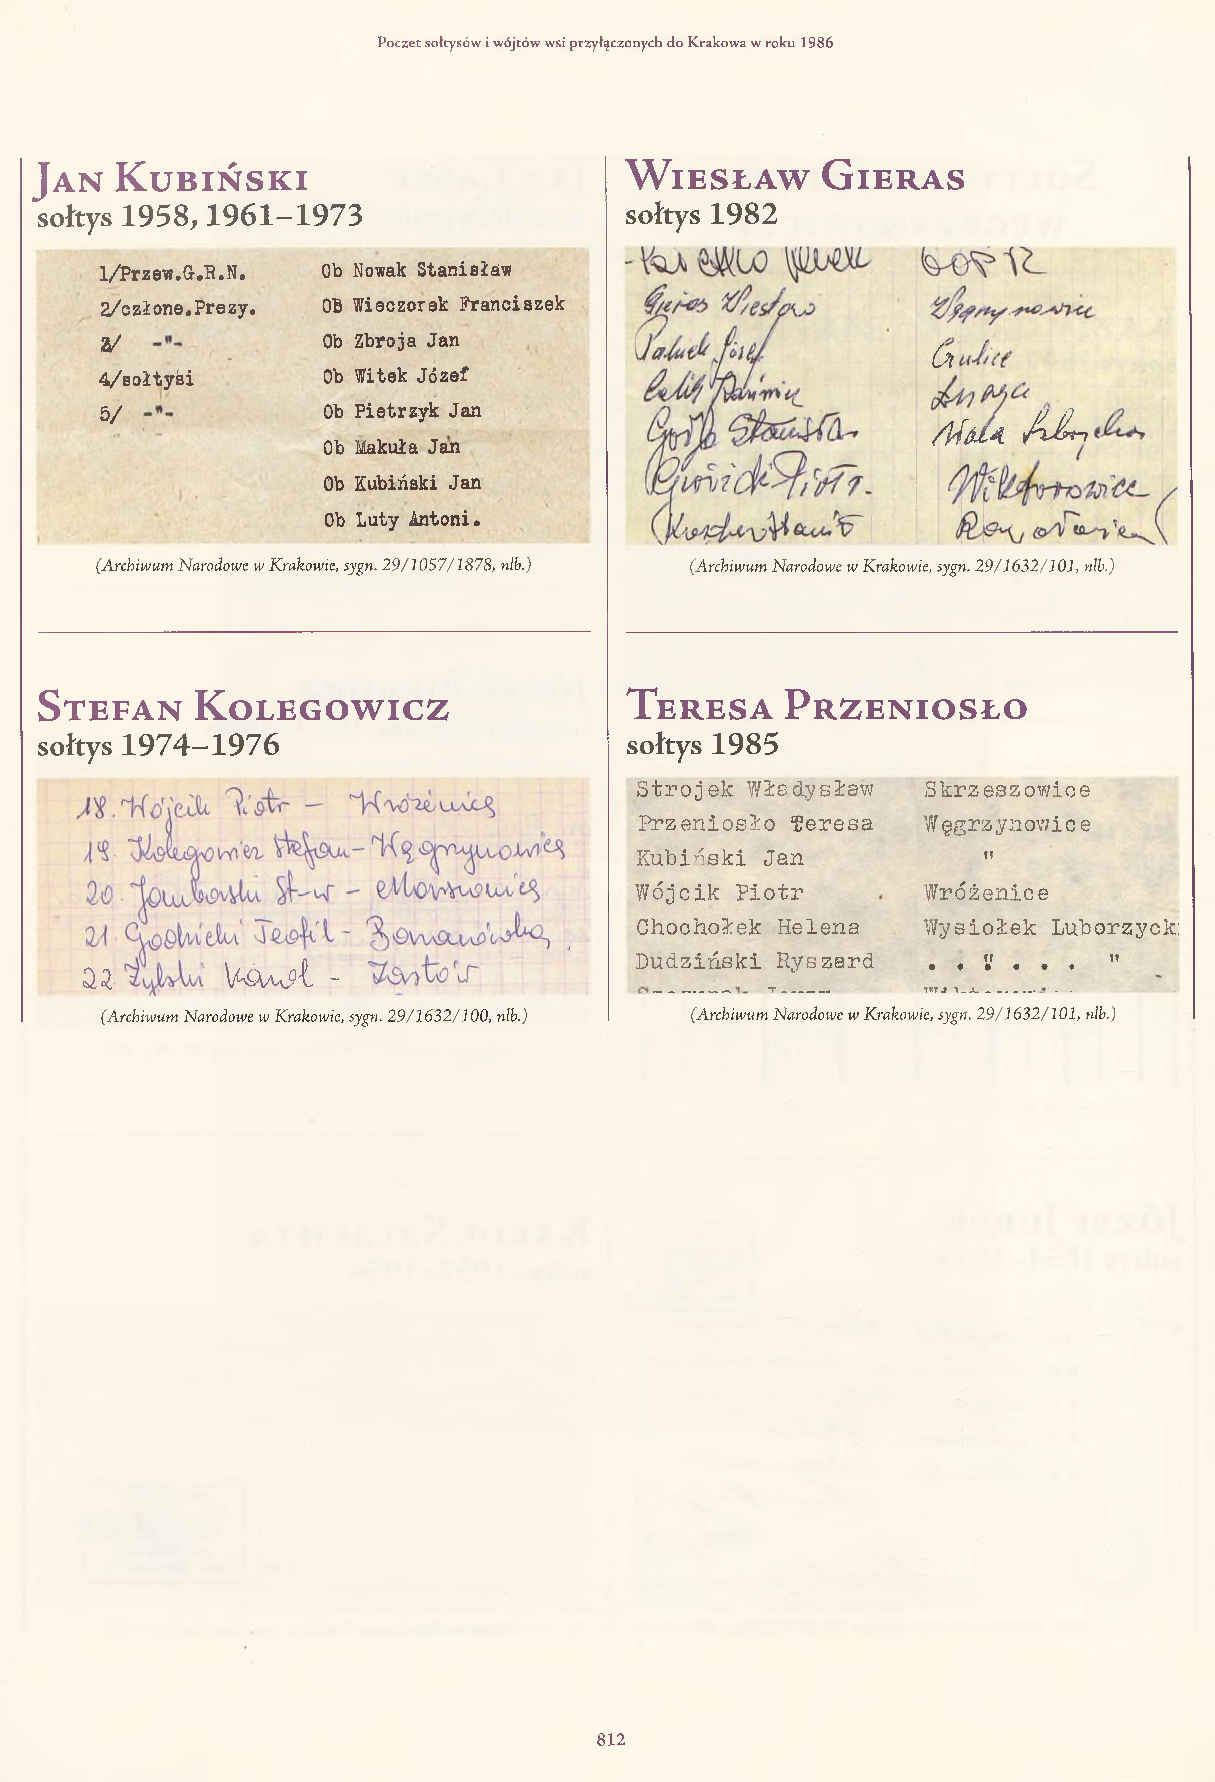 Poczet sołtysów i wójtów wsi przyłączonych do Krakowa w roku 1986
JAN KUBIŃSKI
sołtys 1958, 1961–1973
1/Przew.G.R.N. Ob Nowak Stanisław
2/człone.Prezy. OB Wieczorek Franciszek
3/ -"- Ob Zbroja Jan
4/sołtysi Ob Witek Józef
5/ -"- Ob Pietrzyk Jan
Ob Makuła Jan
Ob Kubiński Jan
Ob Luty Antoni.
(Archiwum Narodowe w Krakowie, sygn. 29/1057/1878, nlb.)
WIESŁAW GIERAS
sołtys 1982
Gieras Wiesław Węgrzynowice
Paluch Józef Czulice
Stanisław
Piotr. Wiktorowice
(Archiwum Narodowe w Krakowie, sygn. 29/1632/101, nlb.)
STEFAN KOLEGOWICZ
sołtys 1974–1976
18. Wójcik Piotr – Wróżenice
19. Kolegowicz Stefan – Węgrzynowice
20. St-w –
21. Godnicki Teofil –
22. Żylski Karol – Zastów
(Archiwum Narodowe w Krakowie, sygn. 29/1632/100, nlb.)
TERESA PRZENIOSŁO
sołtys 1985
Strojek Władysław Skrzeszowice
Przeniosło Teresa Węgrzynowice
Kubiński Jan "
Wójcik Piotr Wróżenice
Chochołek Helena Wysiołek Luborzyck
Dudziński Ryszard . . " . . . "
(Archiwum Narodowe w Krakowie, sygn. 29/1632/101, nlb.)
812